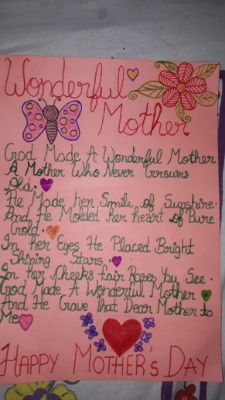 Wonderful
Mother
God Made A Wonderful Mother
A Mother Who Never Grows
Old.
He Made her Smile of Sunshine.
And He Molded her heart of Pure
Gold.
In her Eyes He Placed Bright
Shining Stars.
In her Cheeks fair Roses You See.
God Made A Wonderful Mother
And He Gave that Dear Mother to
Me
HAPPY MOTHER'S DAY